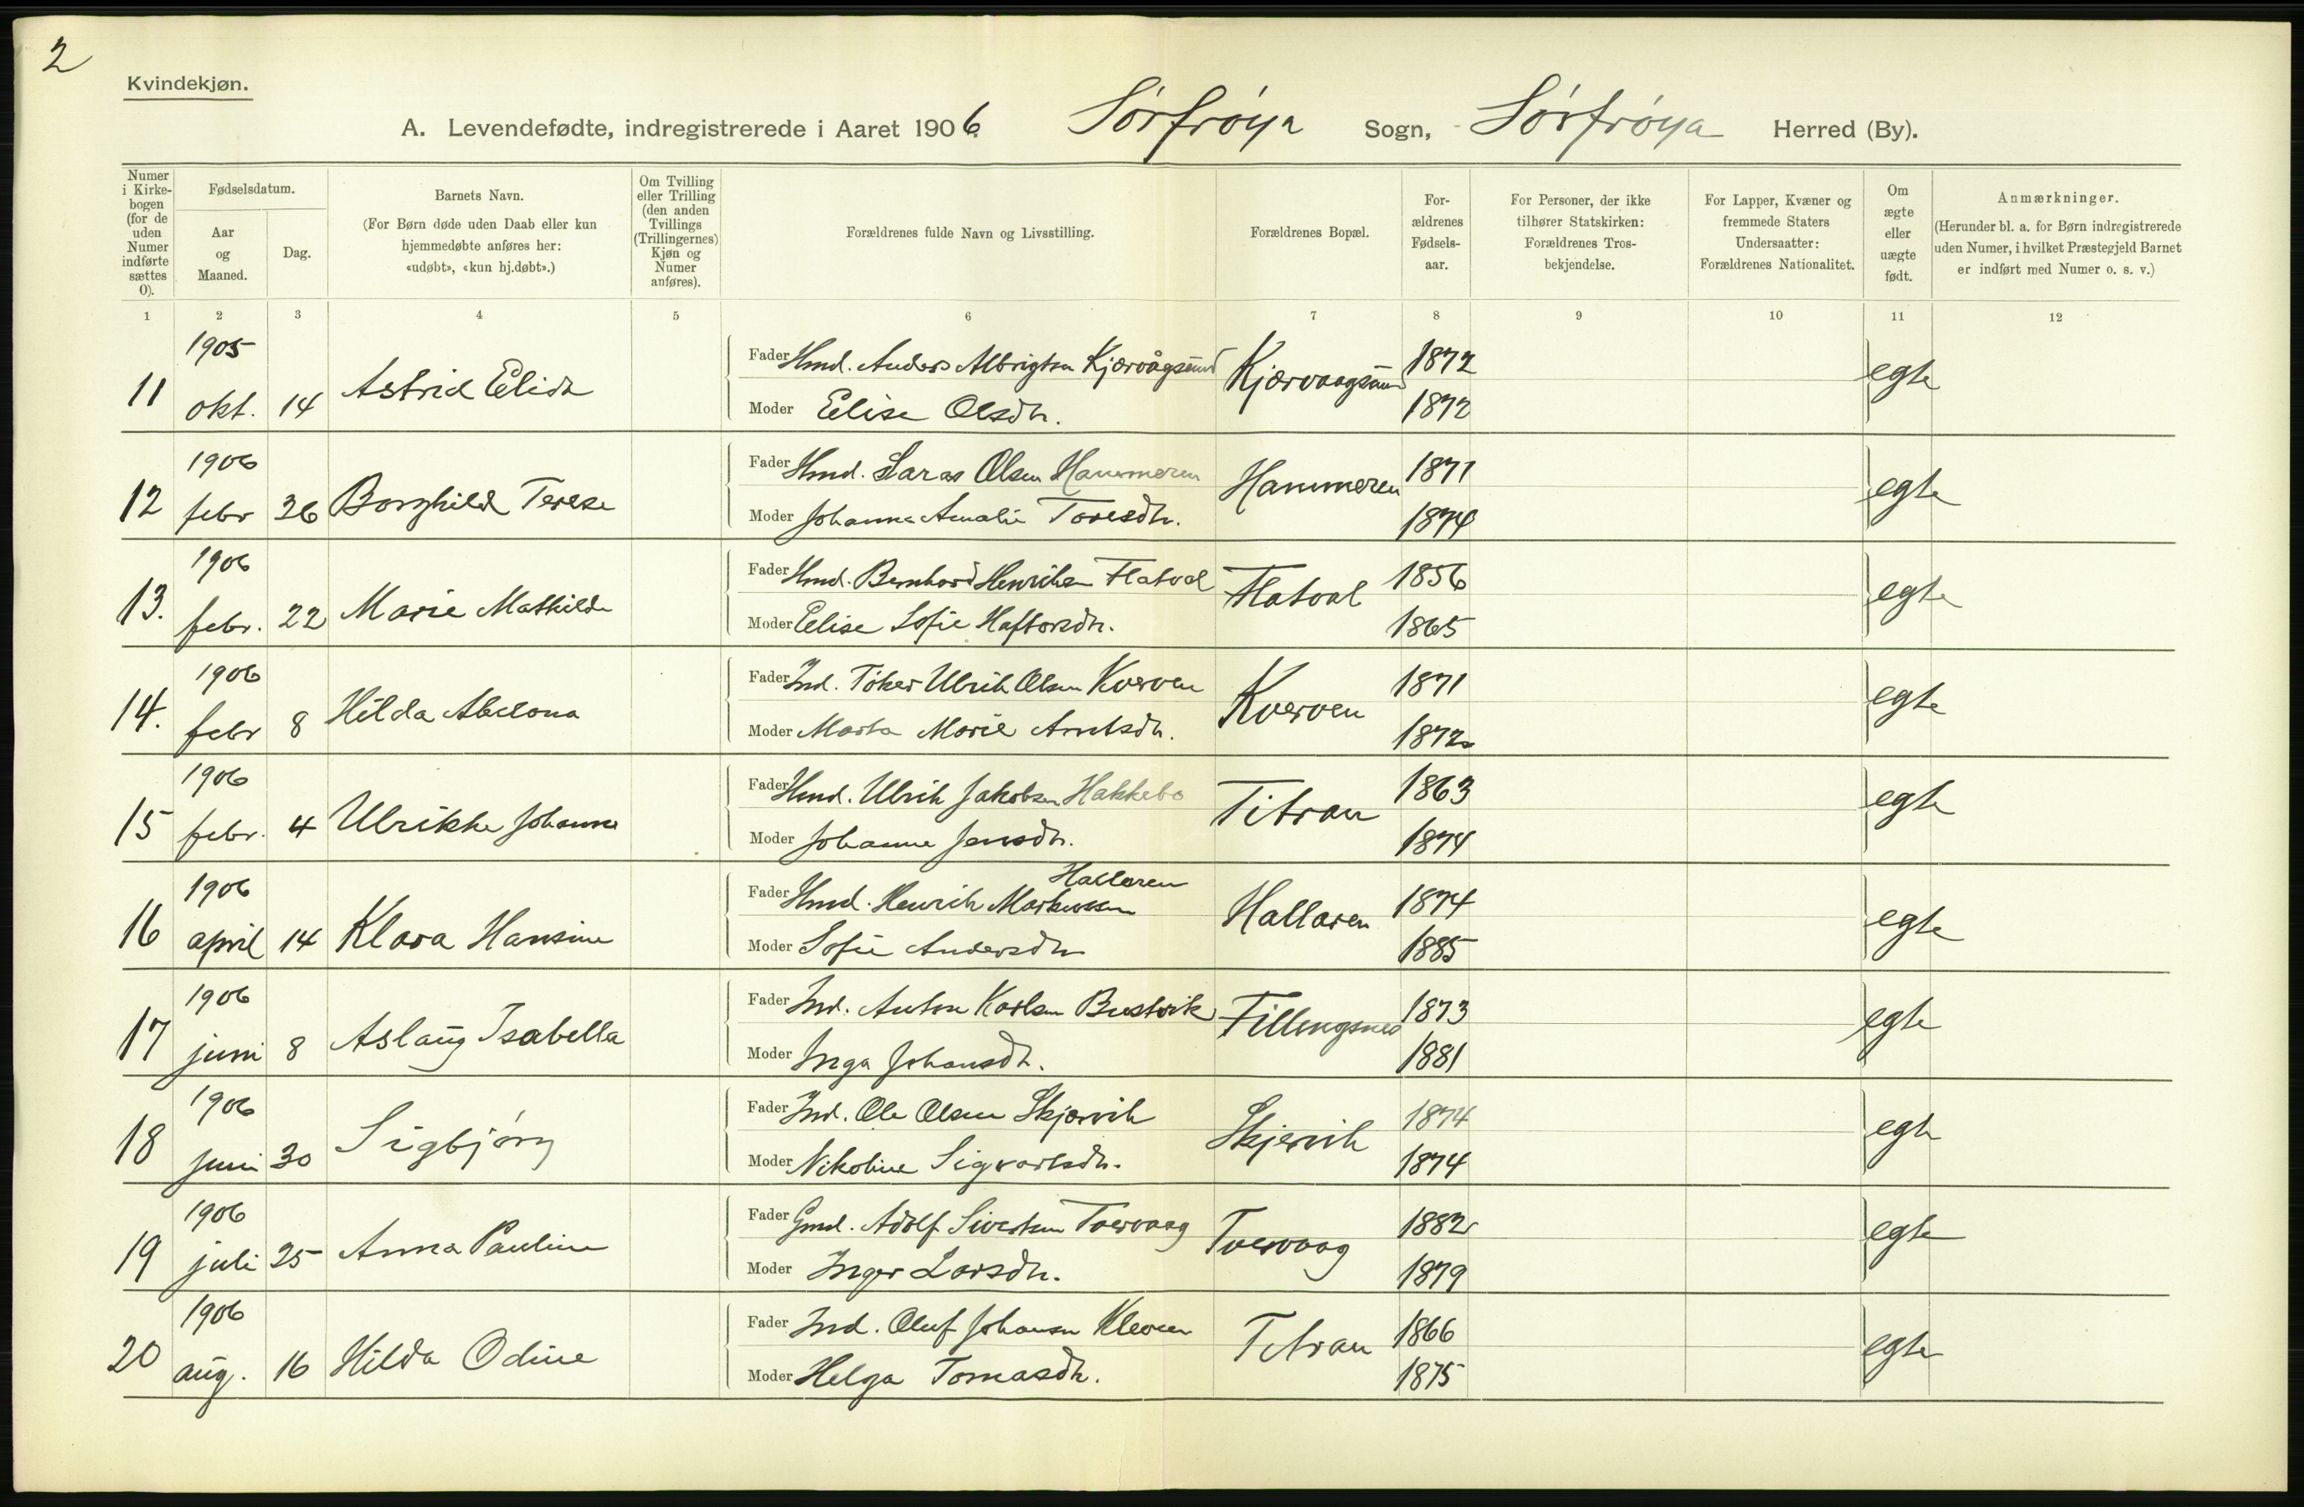 2
Kvindekjøn.
A. Levendefødte, indregistrerede i Aaret 1906. Sørfrøya Sogn, Sørfrøya Herred (By).
Numer i Kirkebogen (for de uden Numer indførte sættes 0).
Fødselsdatum.
Aar og Maaned.
Dag.
Barnets Navn.
(For Børn døde uden Daab eller kun hjemmedøbte anføres her: «udøbt», «kun hj.døbt».)
Om Tvilling eller Trilling (den anden Tvillings (Trillingernes) Kjøn og Numer anføres).
Forældrenes fulde Navn og Livsstilling.
Forældrenes Bopæl.
Forældrenes Fødselsaar.
For Personer, der ikke tilhører Statskirken: Forældrenes Trosbekjendelse.
For Lapper, Kvæner og fremmede Staters Undersaatter: Forældrenes Nationalitet.
Om ægte eller uægte født.
Anmærkninger.
(Herunder bl. a. for Børn indregistrerede uden Numer, i hvilket Præstegjeld Barnet er indført med Numer o. s. v.)
1 2 3 4 5 6 7 8 9 10 11 12
11 1905 okt. 14 Astrid Elida Fader Hmd. Anders Albrigtsen Kjærvågsund Kjærvaagsund 1872 egte
Moder Elise Olsdtr. 1872
12 1906 febr 26 Borghild Terese Fader Hmd. Laras Olsen Hammeren Hammeren 1871 egte
Moder Johanna Amalie Toresdtr. 1874
13. 1906 febr. 22 Marie Mathilde Fader Hmd. Bernhard Henriksen Flatval Flatval 1856 egte
Moder Elise Sofie Haftorsdtr. 1865
14. 1906 febr 8 Hilda Abelona Fader Ind. Tøker Ulrik Olsen Kverven Kverven 1871 egte
Moder Marta Marie Arntsdtr. 1872
15 1906 febr. 4 Ulrikke Johanna Fader Hmd. Ulrik Jakobsen Hakkebo Titran 1863 egte
Moder Johanne Jensdtr. 1874
16 1906 april 14 Klara Hansine Fader Hmd. Henrik Markussen Hallaren Hallaren 1874 egte
Moder Sofie Andersdtr 1885
17 1906 juni 8 Aslaug Isabella Fader Ind. Anton Karlsen Bustvik Fillingsnes 1873 egte
Moder Inga Johansdtr. 1881
18 1906 juni 30 Sigbjørg Fader Ind. Ole Olsen Skjærvik Skjervik 1874 egte
Moder Nikoline Sigvartsdtr. 1874
19 1906 juli 25 Anna Pauline Fader Gmd. Adolf Sivertsen Tvervaag Tvervaag 1882 egte
Moder Inger Larsdtr. 1879
20 1906 aug. 16 Hilda Odine Fader Ind. Oluf Johansen Kleven Titran 1866 egte
Moder Helga Tomasdtr. 1875